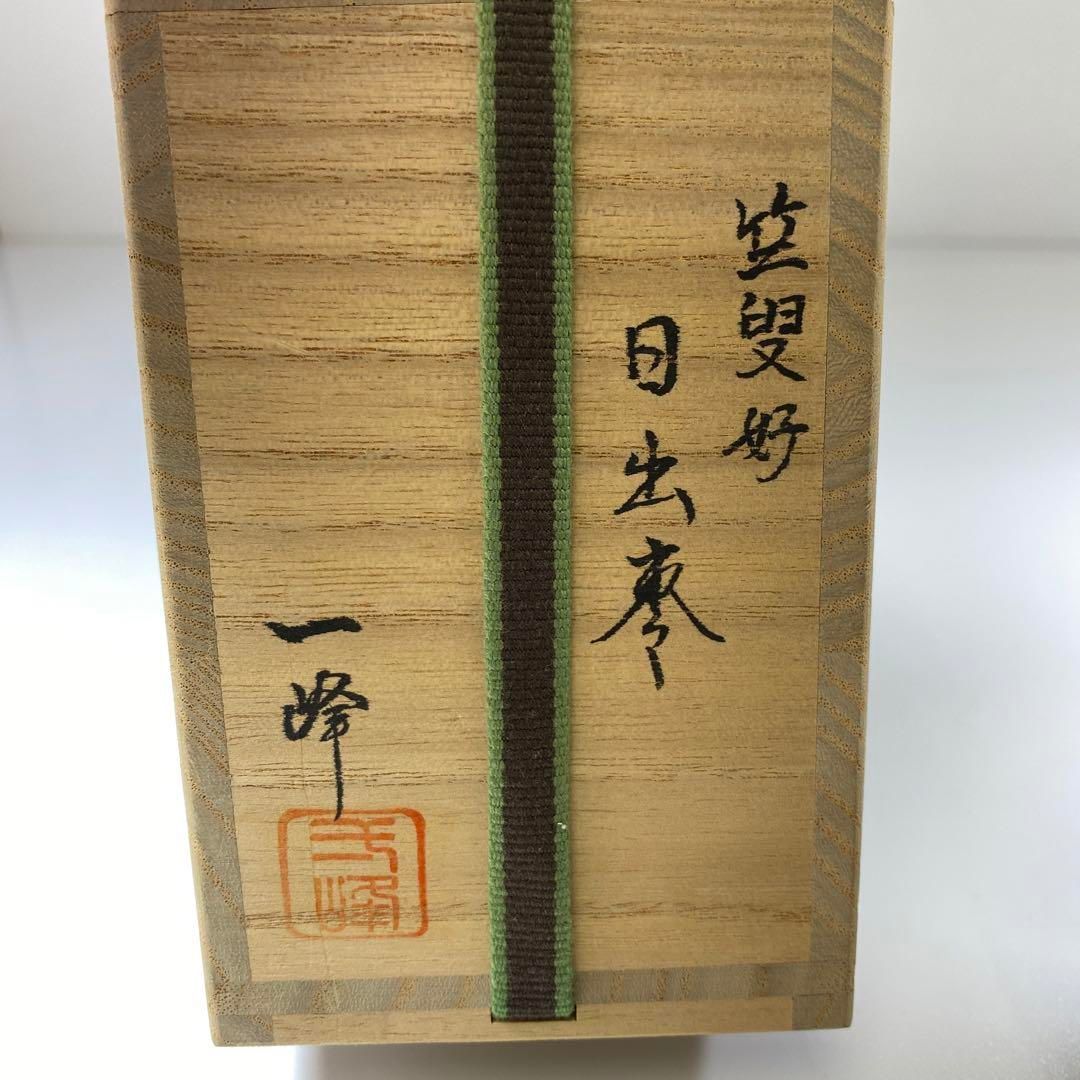 笠叟好
日出棗
一峰
弌峰